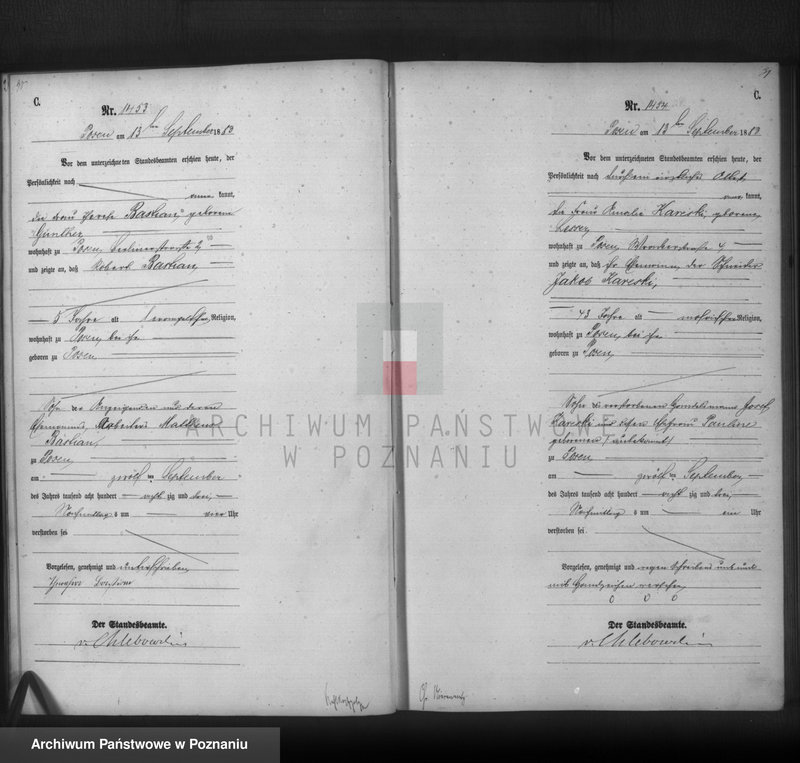 C.
Nr. 1453
Posen am 13ten September 1883
Vor dem unterzeichneten Standesbeamten erschien heute, der
Persönlichkeit nach
kannt,
die Frau Bastian, geborene
Günther
wohnhaft zu Posen
und zeigte an, daß Robert Bastian,
5 Jahre alt Religion,
wohnhaft zu Posen bei ihr
geboren zu Posen
Sohn der Anzeigenden und deren
Ehemannes, Arbeiters
Bastian
zu Posen
am zwölften September
des Jahres tausend acht hundert achtzig und drei,
Nachmittags um vier Uhr
verstorben sei
Vorgelesen, genehmigt und unterschrieben
Der Standesbeamte.
v. Chlebowski
C.
Nr. 1454
Posen am 13ten September 1883
Vor dem unterzeichneten Standesbeamten erschien heute, der
Persönlichkeit nach
kannt,
die Frau Emalie Kareski, geborene
wohnhaft zu Posen Wronkerstraße 4
und zeigte an, daß ihr Ehemann, der Schneider
Jakob Kareski,
43 Jahre alt mosaischer Religion,
wohnhaft zu Posen bei ihr
geboren zu Posen
Sohn des verstorbenen Handelsmanns Josef
Kareski und dessen Ehefrau Pauline
geborenen (unbekannt)
zu Posen
am zwölften September
des Jahres tausend acht hundert achtzig und drei,
Nachmittags um ein Uhr
verstorben sei
Vorgelesen, genehmigt und wegen Schreibens
mit Handzeichen versehen
o o o
Der Standesbeamte.
v. Chlebowski
ARCHIWUM PAŃSTWOWE
W POZNANIU
Archiwum Państwowe w Poznaniu